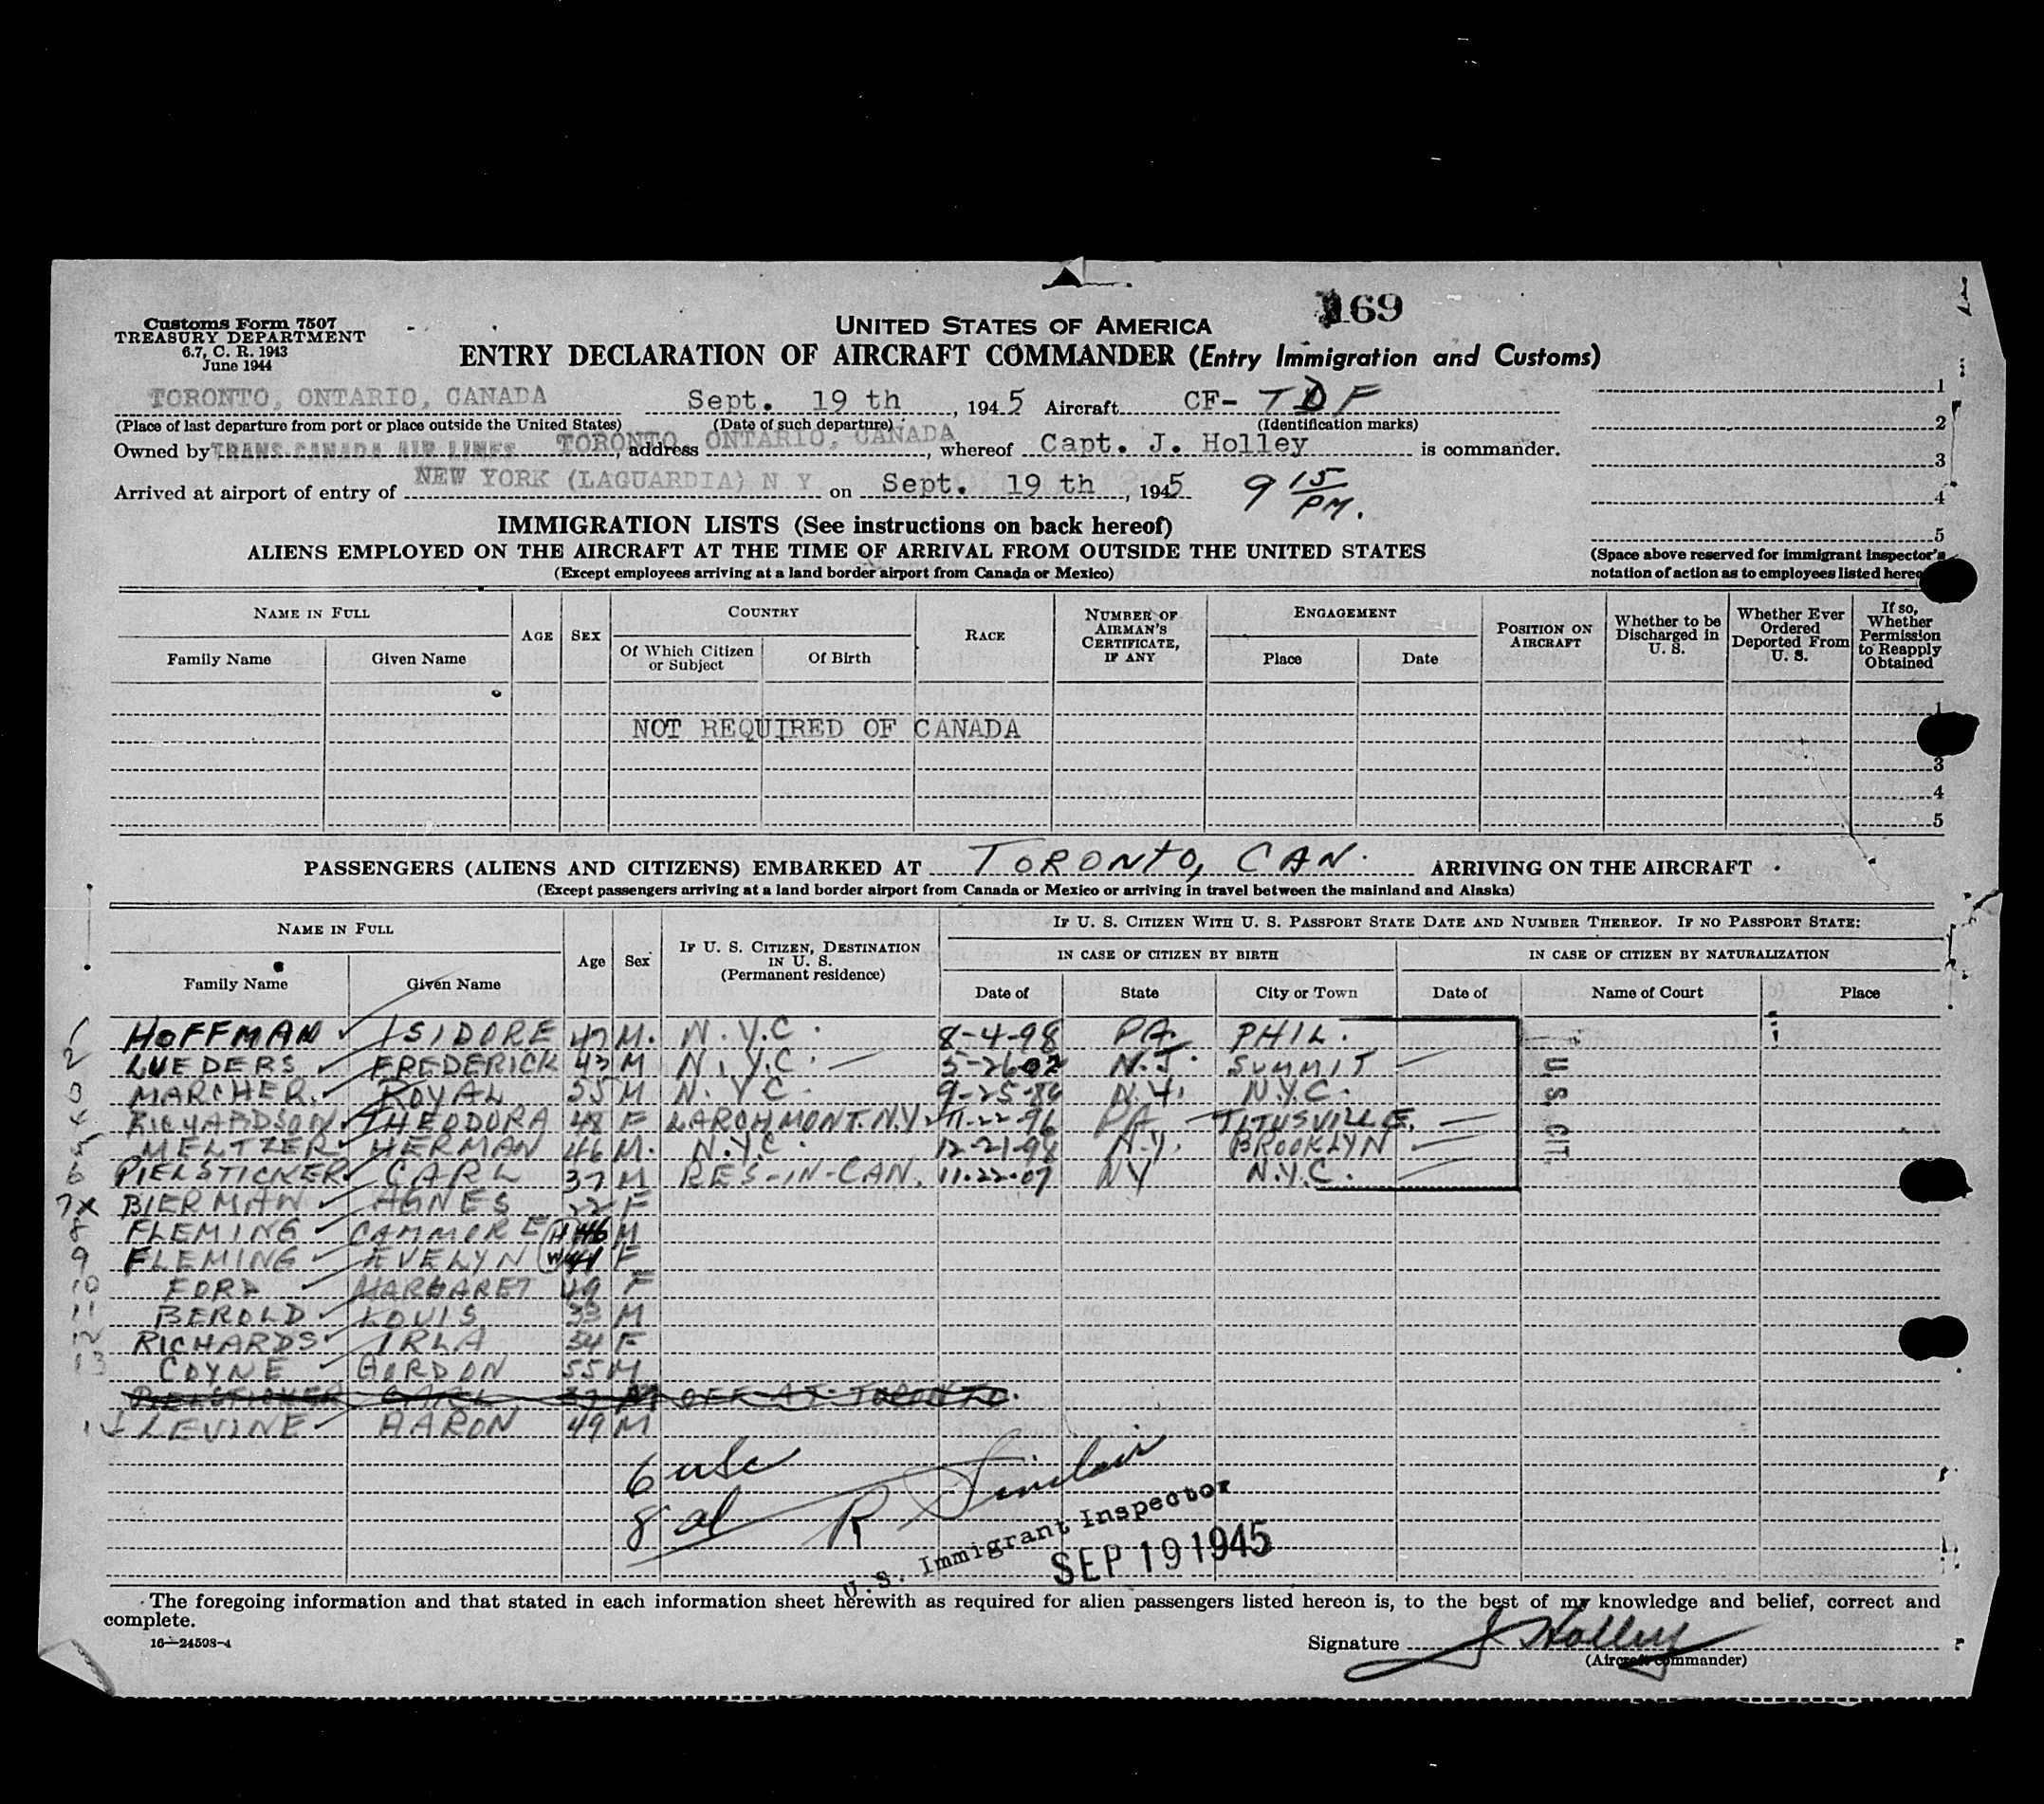 169
Customs Form 7507
TREASURY DEPARTMENT
6.7, C. R. 1943
June 1944
UNITED STATES OF AMERICA
ENTRY DECLARATION OF AIRCRAFT COMMANDER (Entry Immigration and Customs)
TORONTO, ONTARIO, CANADA Sept. 19 th, 1945 Aircraft CF- TDF 1
(Place of last departure from port or place outside the United States) (Date of such departure) (Identification marks) 2
Owned by TRANS-CANADA AIR LINES, address TORONTO, ONTARIO, CANADA, whereof Capt. J. Holley is commander. 3
Arrived at airport of entry of NEW YORK (LAGUARDIA) N Y on Sept. 19 th, 1945 9 15 PM. 4
IMMIGRATION LISTS (See instructions on back hereof) 5
ALIENS EMPLOYED ON THE AIRCRAFT AT THE TIME OF ARRIVAL FROM OUTSIDE THE UNITED STATES (Space above reserved for immigrant inspector's
(Except employees arriving at a land border airport from Canada or Mexico) notation of action as to employees listed
NAME IN FULL AGE SEX COUNTRY RACE NUMBER OF AIRMAN'S CERTIFICATE, IF ANY ENGAGEMENT POSITION ON AIRCRAFT Whether to be Discharged in U. S. Whether Ever Ordered Deported From U. S. If so, Whether Permission to Reapply Obtained
Family Name Given Name Of Which Citizen or Subject Of Birth Place Date
1
NOT REQUIRED OF CANADA
3
4
5
PASSENGERS (ALIENS AND CITIZENS) EMBARKED AT TORONTO, CAN. ARRIVING ON THE AIRCRAFT
(Except passengers arriving at a land border airport from Canada or Mexico or arriving in travel between the mainland and Alaska)
NAME IN FULL Age Sex IF U. S. CITIZEN, DESTINATION IN U. S. (Permanent residence) IF U. S. CITIZEN WITH U. S. PASSPORT STATE DATE AND NUMBER THEREOF. IF NO PASSPORT STATE:
IN CASE OF CITIZEN BY BIRTH IN CASE OF CITIZEN BY NATURALIZATION
Family Name Given Name Date of State City or Town Date of Name of Court Place
1 HOFFMAN ISIDORE 47 M. N.Y.C. 8-4-98 PA. PHIL.
2 LUEDERS FREDERICK 43 M N.Y.C. 5-26-02 N.J. SUMMIT
3 MARCHER ROYAL 55 M N.Y.C. 9-25-86 N.Y. N.Y.C.
4 RICHARDSON THEODORA 48 F LARCHMONT. N.Y. 11-22-96 PA TITUSVILLE.
5 MELTZER HERMAN 46 M. N.Y.C. 12-21-98 N.Y. BROOKLYN
6 PIELSTICKER CARL 37 M RES-IN-CAN. 11-22-07 NY N.Y.C.
U. S. CIT.
7 x BIERMAN AGNES 22 F
8 FLEMING CAMMORE H 46 M
9 FLEMING EVELYN W 41 F
10 FORD MARGARET 49 F
11 BEROLD LOUIS 33 M
12 RICHARDS IRLA 34 F
13 COYNE GORDON 55 M
PIELSTICKER CARL 37 M OFF AT TORONTO.
14 LEVINE AARON 49 M
6 USC
8 al R Sinclair
U.S. Immigrant Inspector
SEP 19 1945
The foregoing information and that stated in each information sheet herewith as required for alien passengers listed hereon is, to the best of my knowledge and belief, correct and
complete.
16—24598-4
Signature J Holley
(Aircraft commander)